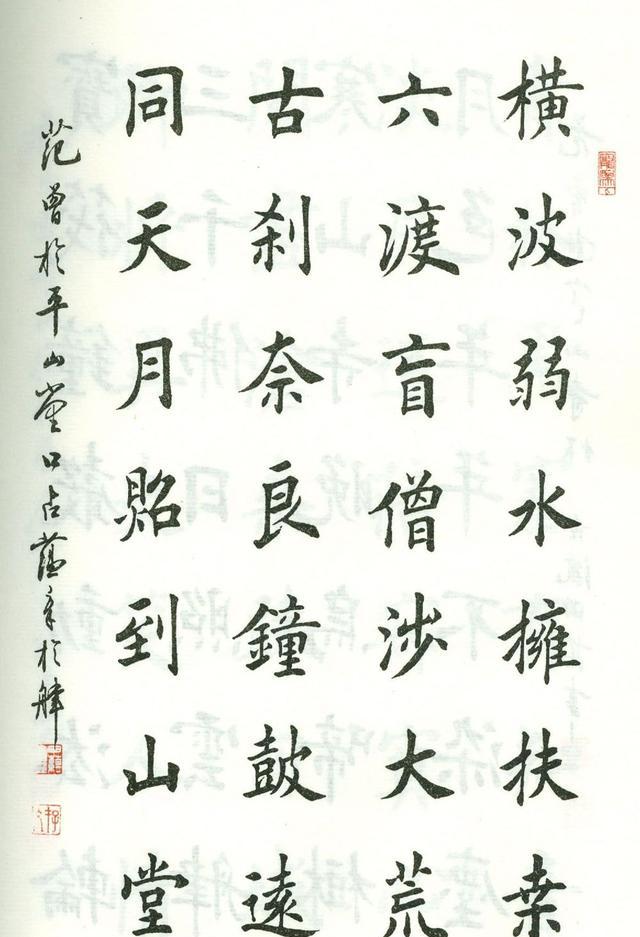 橫波弱水擁扶桒
六渡盲僧涉大荒
古刹奈良鐘皷遠
同天月照到山堂
范曾於平山堂口占